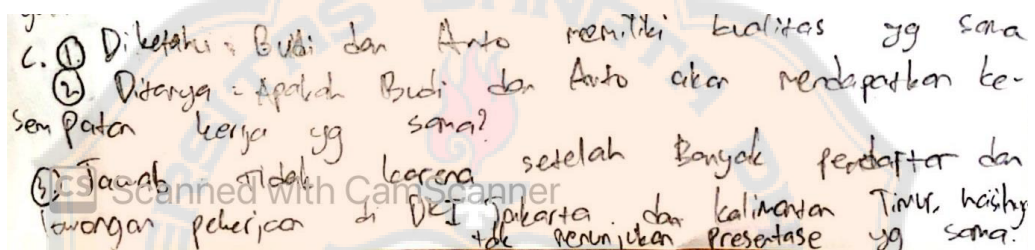 C. ① Diketahui : Budi dan Anto memiliki kualitas yg sama
② Ditanya : Apakah Budi dan Anto akan mendapatkan ke-
sempatan kerja yg sama?
③ Jawab : Tidak karena setelah Banyak pendaftar dan
CS Scanned with CamScanner
lowongan pekerjaan di DKI Jakarta dan kalimantan Timur, hasilny
tdk menunjukan presentase yg sama.